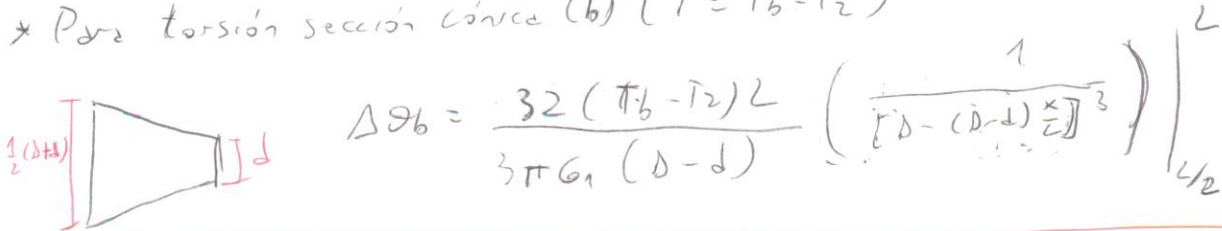 * Para torsión sección cónica (b) (T = Tb-T2)
1/2(D+d) d Δθb = 32(Tb-T2)L / 3πG1(D-d) (1 / [D-(D-d)x/L]^3) |_{L/2}^{L}